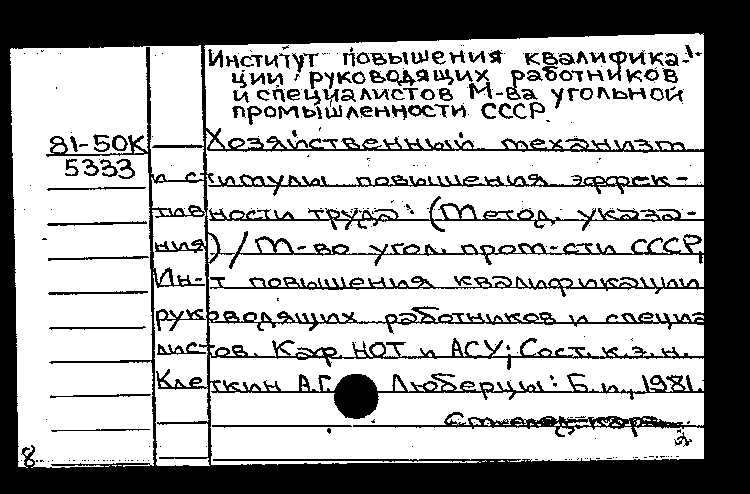 Институт повышения квалифика- 1.
ции руководящих работников
и специалистов М-ва угольной
промышленности СССР.
81-50К Хозяйственный механизм
5333 и стимулы повышения эффек-
тивности труда: (Метод. указа-
ния) / М-во угол. пром-сти СССР,
Ин-т повышения квалификации
руководящих работников и специа
листов. Каф. НОТ и АСУ; Сост. к.э.н.
Клеткин А.Г. Люберцы: Б.и., 1981.
См. след. карт.
2
8